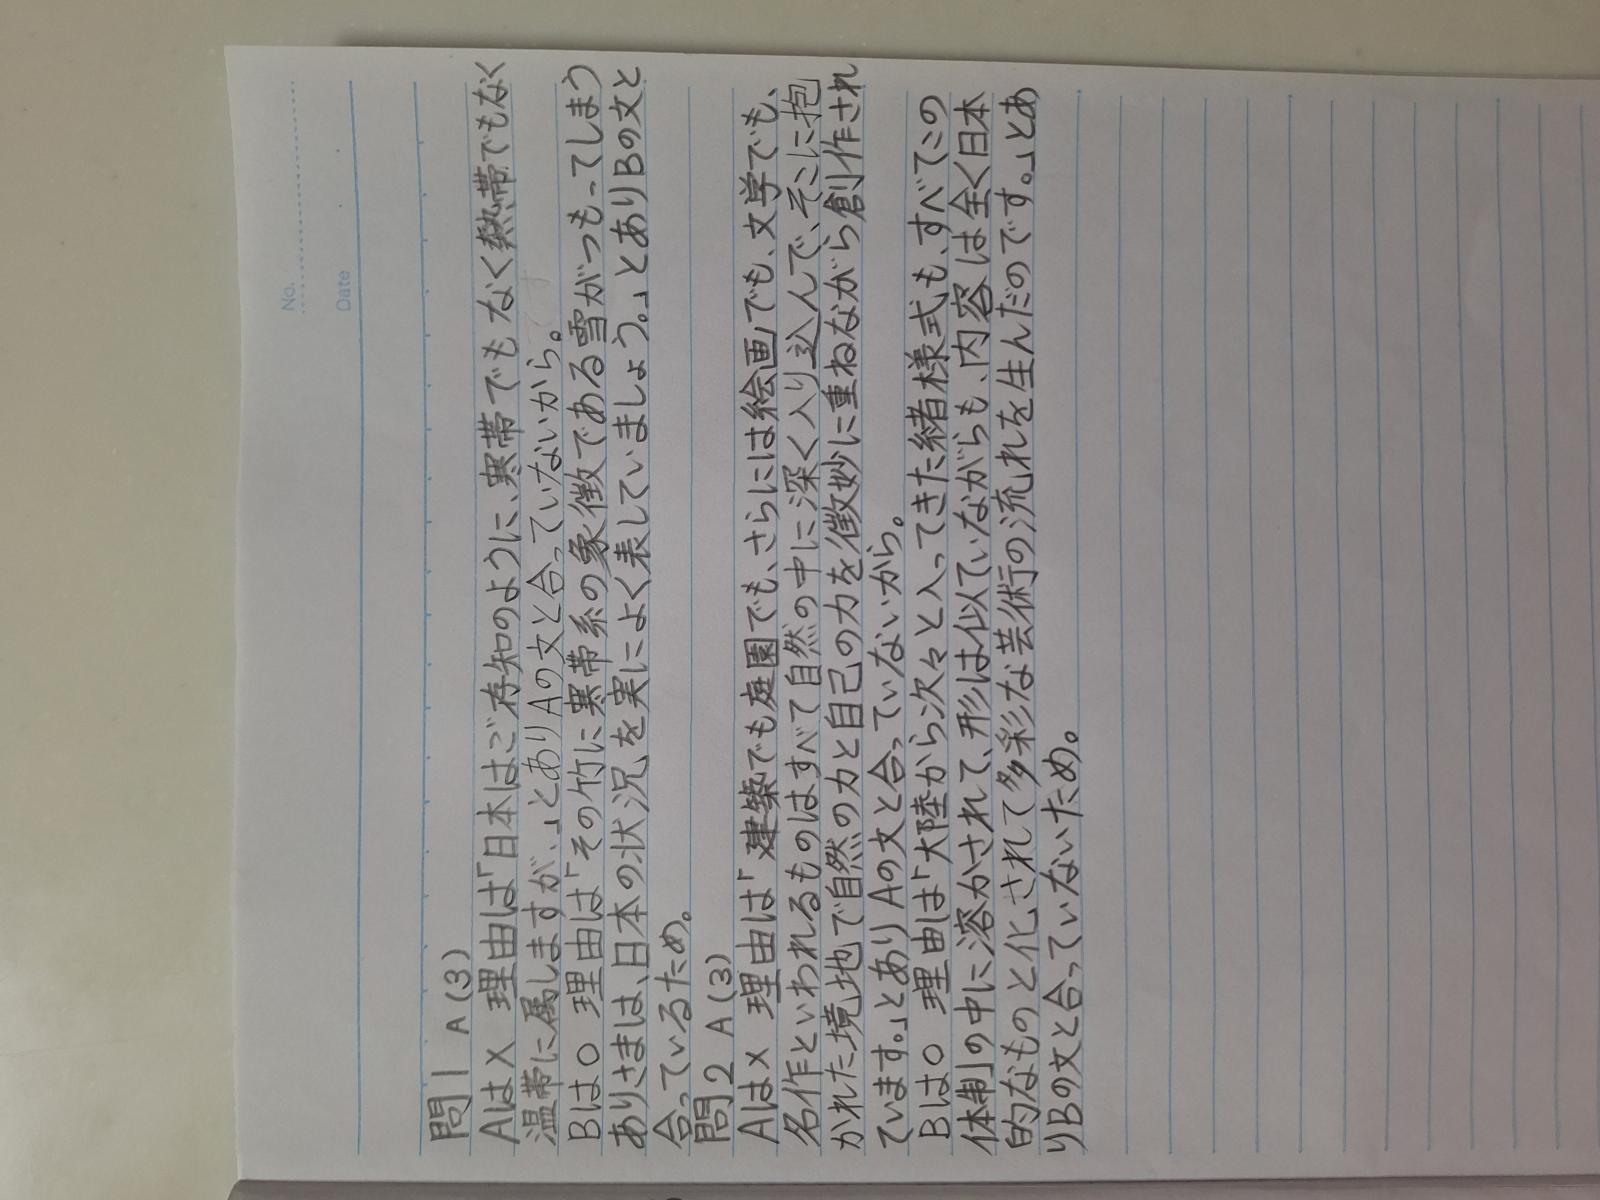 No.
Date
問1 A(3)
Aは× 理由は「日本はご存知のように、寒帯でもなく熱帯でもなく
温帯に属しますが、」とありAの文と合っていないから。
Bは○ 理由は「その竹に寒帯系の象徴である雪がつもってしまう
ありさまは、日本の状況を実によく表していましょう。」とありBの文と
合っているため。
問2 A(3)
Aは× 理由は「建築でも庭園でも、さらには絵画でも、文学でも、
名作といわれるものはすべて自然の中に深く入り込んで、そこに抱
かれた境地で自然の力と自己の力を微妙に重ねながら創作され
ています。」とありAの文と合っていないから。
Bは○ 理由は「大陸から次々と入ってきた緒者様式も、すべてこの
体制」の中に溶かされて、形は似ていながらも、内容は全く日本
的なものと化されて多彩な芸術行の流れを生んだのです。」とあ
りBの文と合っていないため。